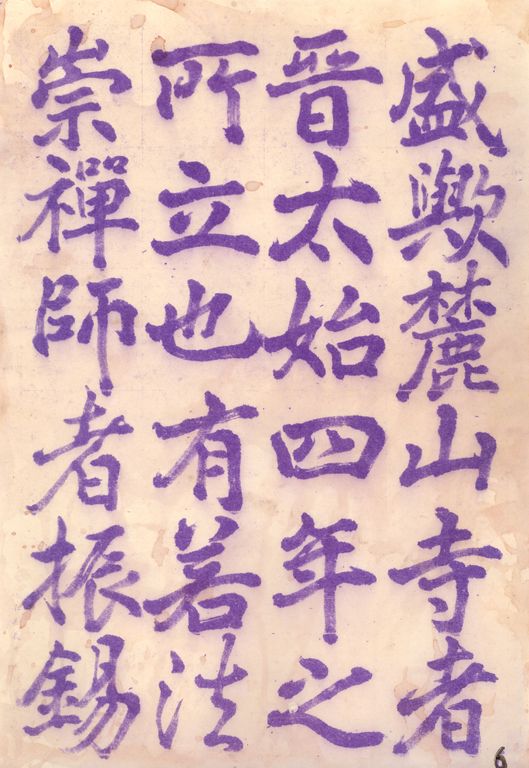 盛歟麓山寺者
晉太始四年之
所立也有若法
崇禪師者振錫
6